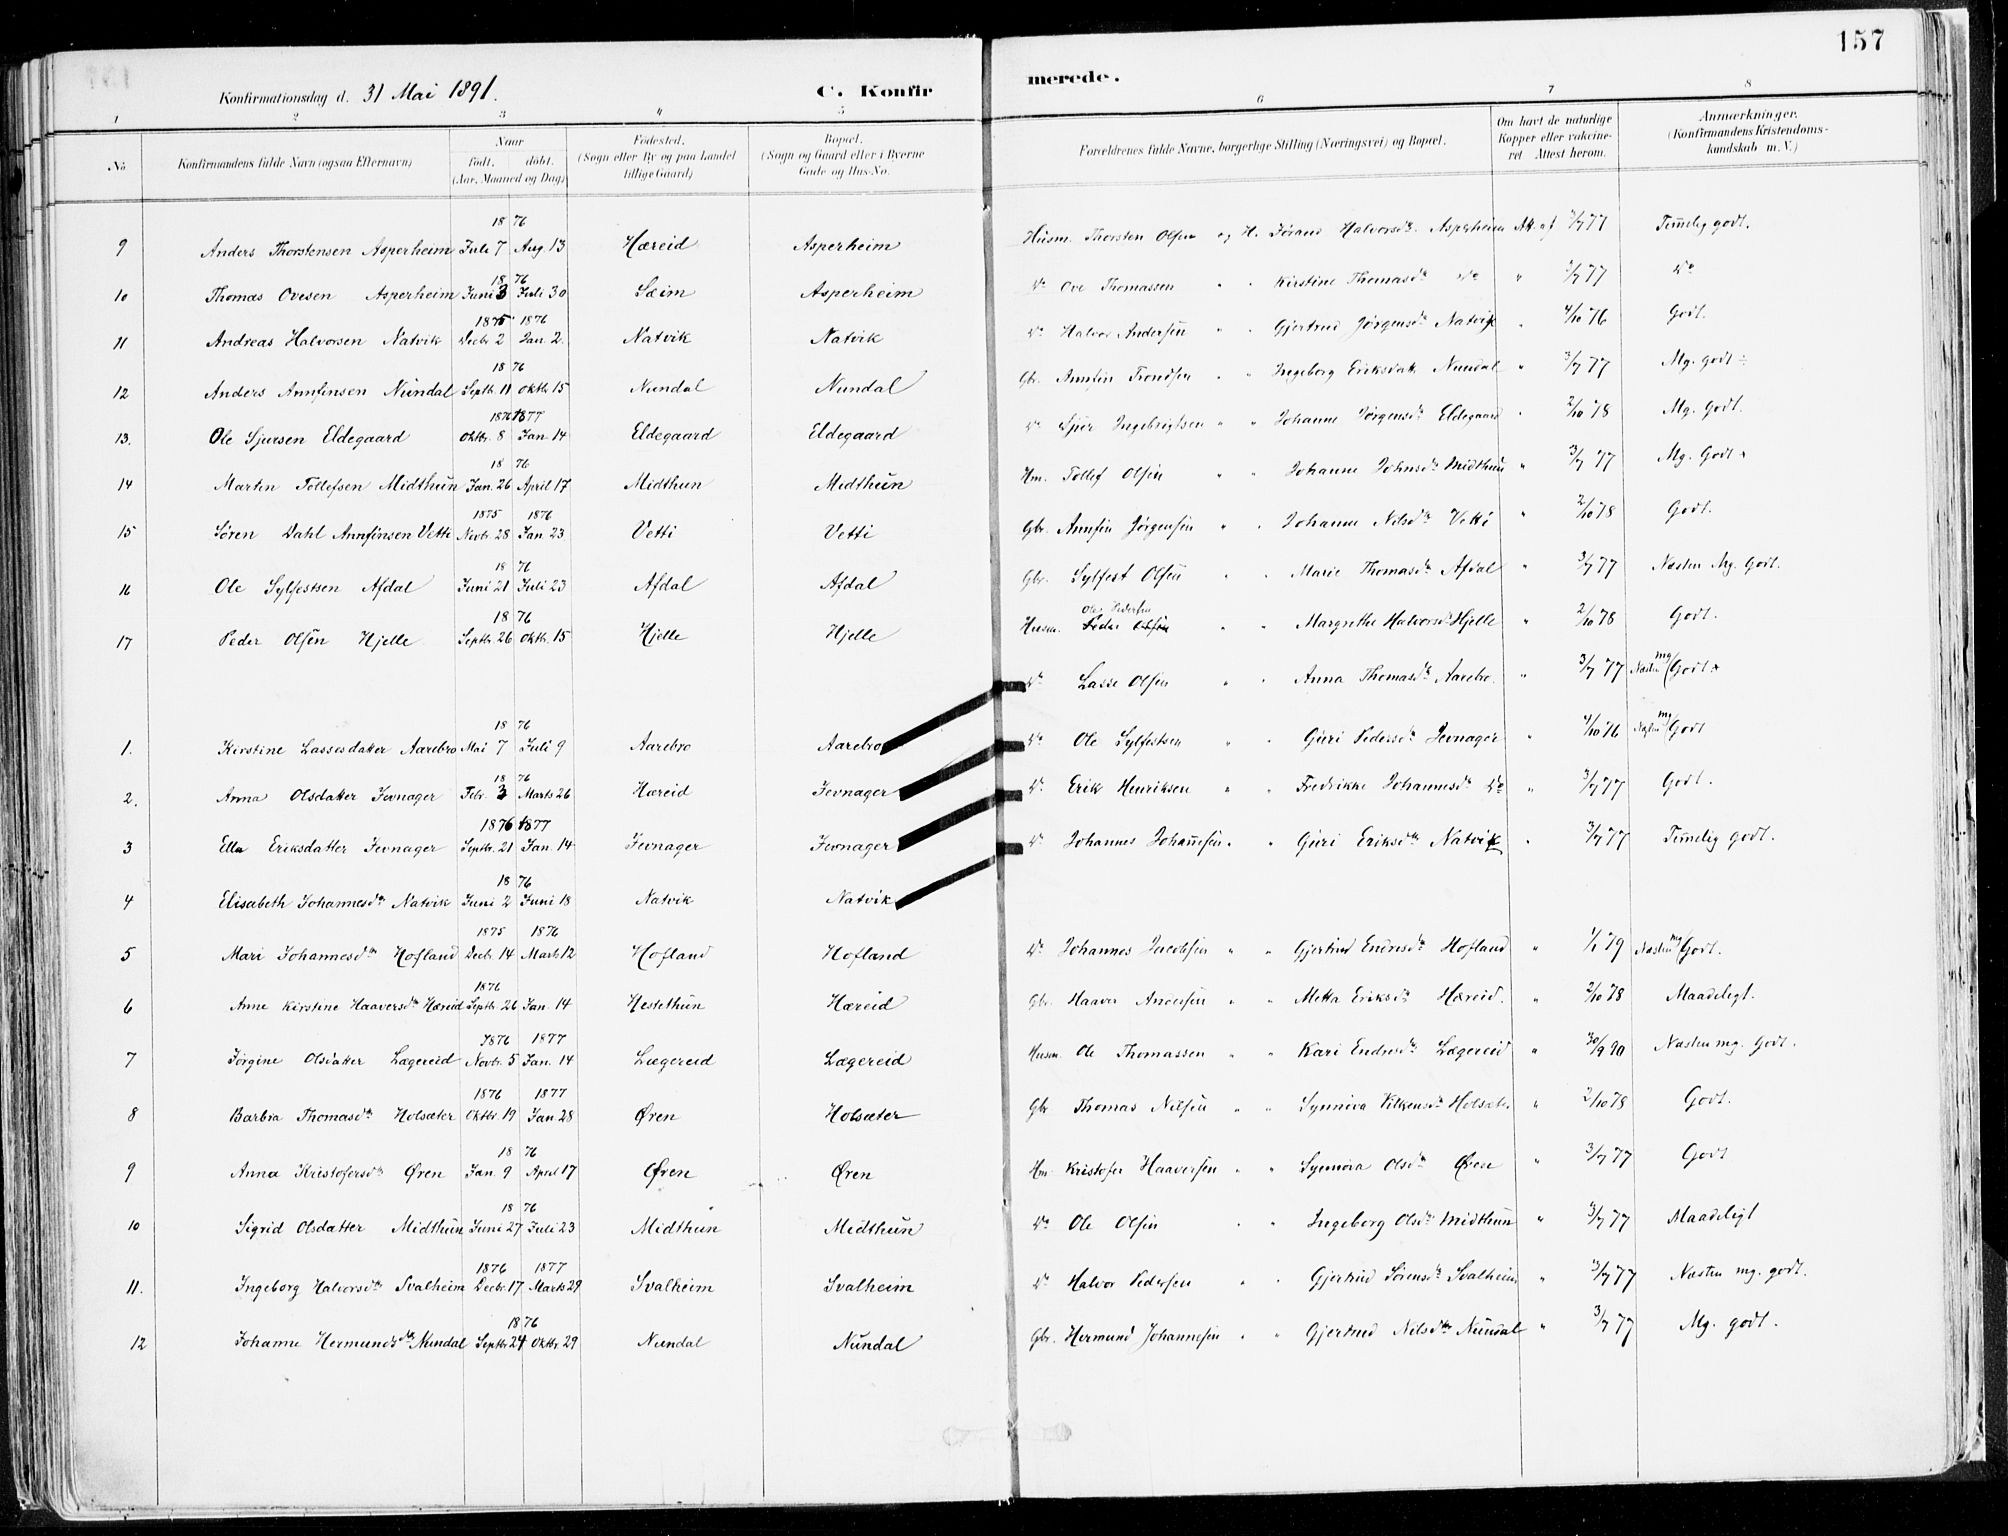 157
Konfirmationsdag d. 31 Mai 1891. C. Konfirmerede.
1 2 3 4 5 6 7 8
No Konfirmandens fulde Navn (ogsaa Efternavn) Naar født, døbt. (Aar, Maaned og Dag) Fødested. (Sogn eller By og paa Landet tillige Gaard) Bopæl. (Sogn og Gaard eller i Byerne Gade og Hus-No. Forældrenes fulde Navne, borgerlige Stilling (Næringsvei) og Bopæl. Om havt de naturlige Kopper eller vakcineret. Attest herom. Anmærkninger. (Konfirmandens Kristendomskundskab m. V.)
9 Anders Thorstensen Asperheim 1876 Juli 7 Aug. 13 Hæreid Asperheim Husm. Thorsten Olsen og H. Jørand Halvorsdr. Asperheim At. af 3/7 77 Temmelig godt.
10 Thomas Ovesen Asperheim 1876 Juni 3 Juli 30 Sæim Asperheim Do Ove Thomassen " " Kirstine Thomasdr Do " 3/7 77 Do
11 Andreas Halvorsen Natvik 1875 Decbr 2 1876 Jan. 2. Natvik Natvik Do Halvor Andersen " " Gjertrud Jørgensdr Natvik " 4/10 76 Godt.
12 Anders Annfinsen Nundal 1876 Septb. 11 Oktb. 15 Nundal Nundal Gbr. Annfin Trondsen " " Ingeborg Eriksdatr Nundal " 3/7 77 Mg. godt ÷
13. Ole Sjursen Eldegaard 1876 Oktbr. 8 1877 Jan. 14 Eldegaard Eldegaard Do Sjur Ingebrigtsen " " Johanne Jørgensdr Eldegaard " 2/10 78 Mg. Godt.
14 Martin Tollefsen Midthun 1876 Jan. 26 April 17 Midthun Midthun Hm. Tollef Olsen " " Johanne Johnsdr Midthun " 3/7 77 Mg. Godt
15 Søren Dahl Annfinsen Vetti 1875 Novbr. 28 1876 Jan. 23 Vetti Vetti Gbr. Annfin Jørgensen " " Johanne Nilsdr Vetti " 2/10 78 Godt.
16 Ole Sylfestsen Afdal 1876 Juni 21 Juli 23 Afdal Afdal Gbr. Sylfest Olsen " " Marie Thomasdr Afdal " 3/7 77 Næsten Mg. Godt.
17 Peder Olsen Hjelle 1876 Septb. 26 Oktb. 15 Hjelle Hjelle Husm. Ole Pedersen Peder Olsen " " Margrethe Halvorsdr Hjelle " 2/10 78 Godt.
Do Lasse Olsen " " Anna Thomasdr Aarebro. " 3/7 77 Næsten mg Godt
1. Kirstine Lassesdatter Aarebro 1876 Mai 7 Juli 9 Aarebro Aarebro Do Ole Sylfestsen " " Guri Pedersdr Jevnager " 4/10 76 Næsten mg Godt
2. Anna Olsdatter Jevnager 1876 Febr. 3 Marts 26 Hæreid Jevnager Do Erik Henriksen " " Fredrikke Johannesdr Do " 3/7 77 Godt.
3 Ella Eriksdatter Jevnager 1876 Septbr. 21 1877 Jan. 14 Jevnager Jevnager Do Johannes Johannesen " " Guri Eriksdr Natvik " 3/7 77 Temmelig godt.
4 Elisabeth Johannesdr Natvik 1876 Juni 2 Juni 18 Natvik Natvik
5 Mari Johannesdr Hofland 1875 Decbr. 14 1876 Marts 12 Hofland Hofland Do Johannes Jacobsen " " Gjertrud Endresdr Hofland " 1/1 79 Næsten mg Godt.
6 Anne Kirstine Haaversdr Hæreid 1876 Septb. 26 Jan. 14 Hestethun Hæreid Gbr. Haaver Andersen " " Metta Eriksdr Hæreid. " 2/10 78 Maadeligt.
7 Jørgine Olsdatter Lægereid 1876 Novbr. 5 1877 Jan. 14 Lægereid Lægereid Husm. Ole Thomassen " " Kari Endresdr Lægereid " 30/9 90 Næsten mg. Godt.
8 Barbra Thomasdr Holsæter 1876 Oktbr. 19 1877 Jan. 28 Øren Holsæter Gbr Thomas Nilsen " " Synneva Vilkensdr Holsæt. " 2/10 78 Godt.
9 Anna Kristofersdr Øren 1876 Jan. 9 April 17 Øren Øren Hm. Kristofer Haaversen " " Synnøva Olsdr Øren " 3/7 77 Godt
10 Sigrid Olsdatter Midthun 1876 Juni 27 Juli 23 Midthun Midthun Do Ole Olsen " " Ingeborg Olsdr Midthun " 3/7 77 Maadeligt
11. Ingeborg Halvorsdr Svalheim 1876 Decbr. 17 1877 Marts 29 Svalheim Svalheim Do Halvor Pedersen " " Gjertrud Sørensdr Svalheim " 3/7 77 Næsten mg. godt.
12 Johanne Hermundsdtr Nundal 1876 Septbr 24 Oktbr. 29 Nundal Nundal Gbr. Hermund Johannesen " " Gjertrud Nilsdtr Nundal " 3/7 77 Mg. godt.